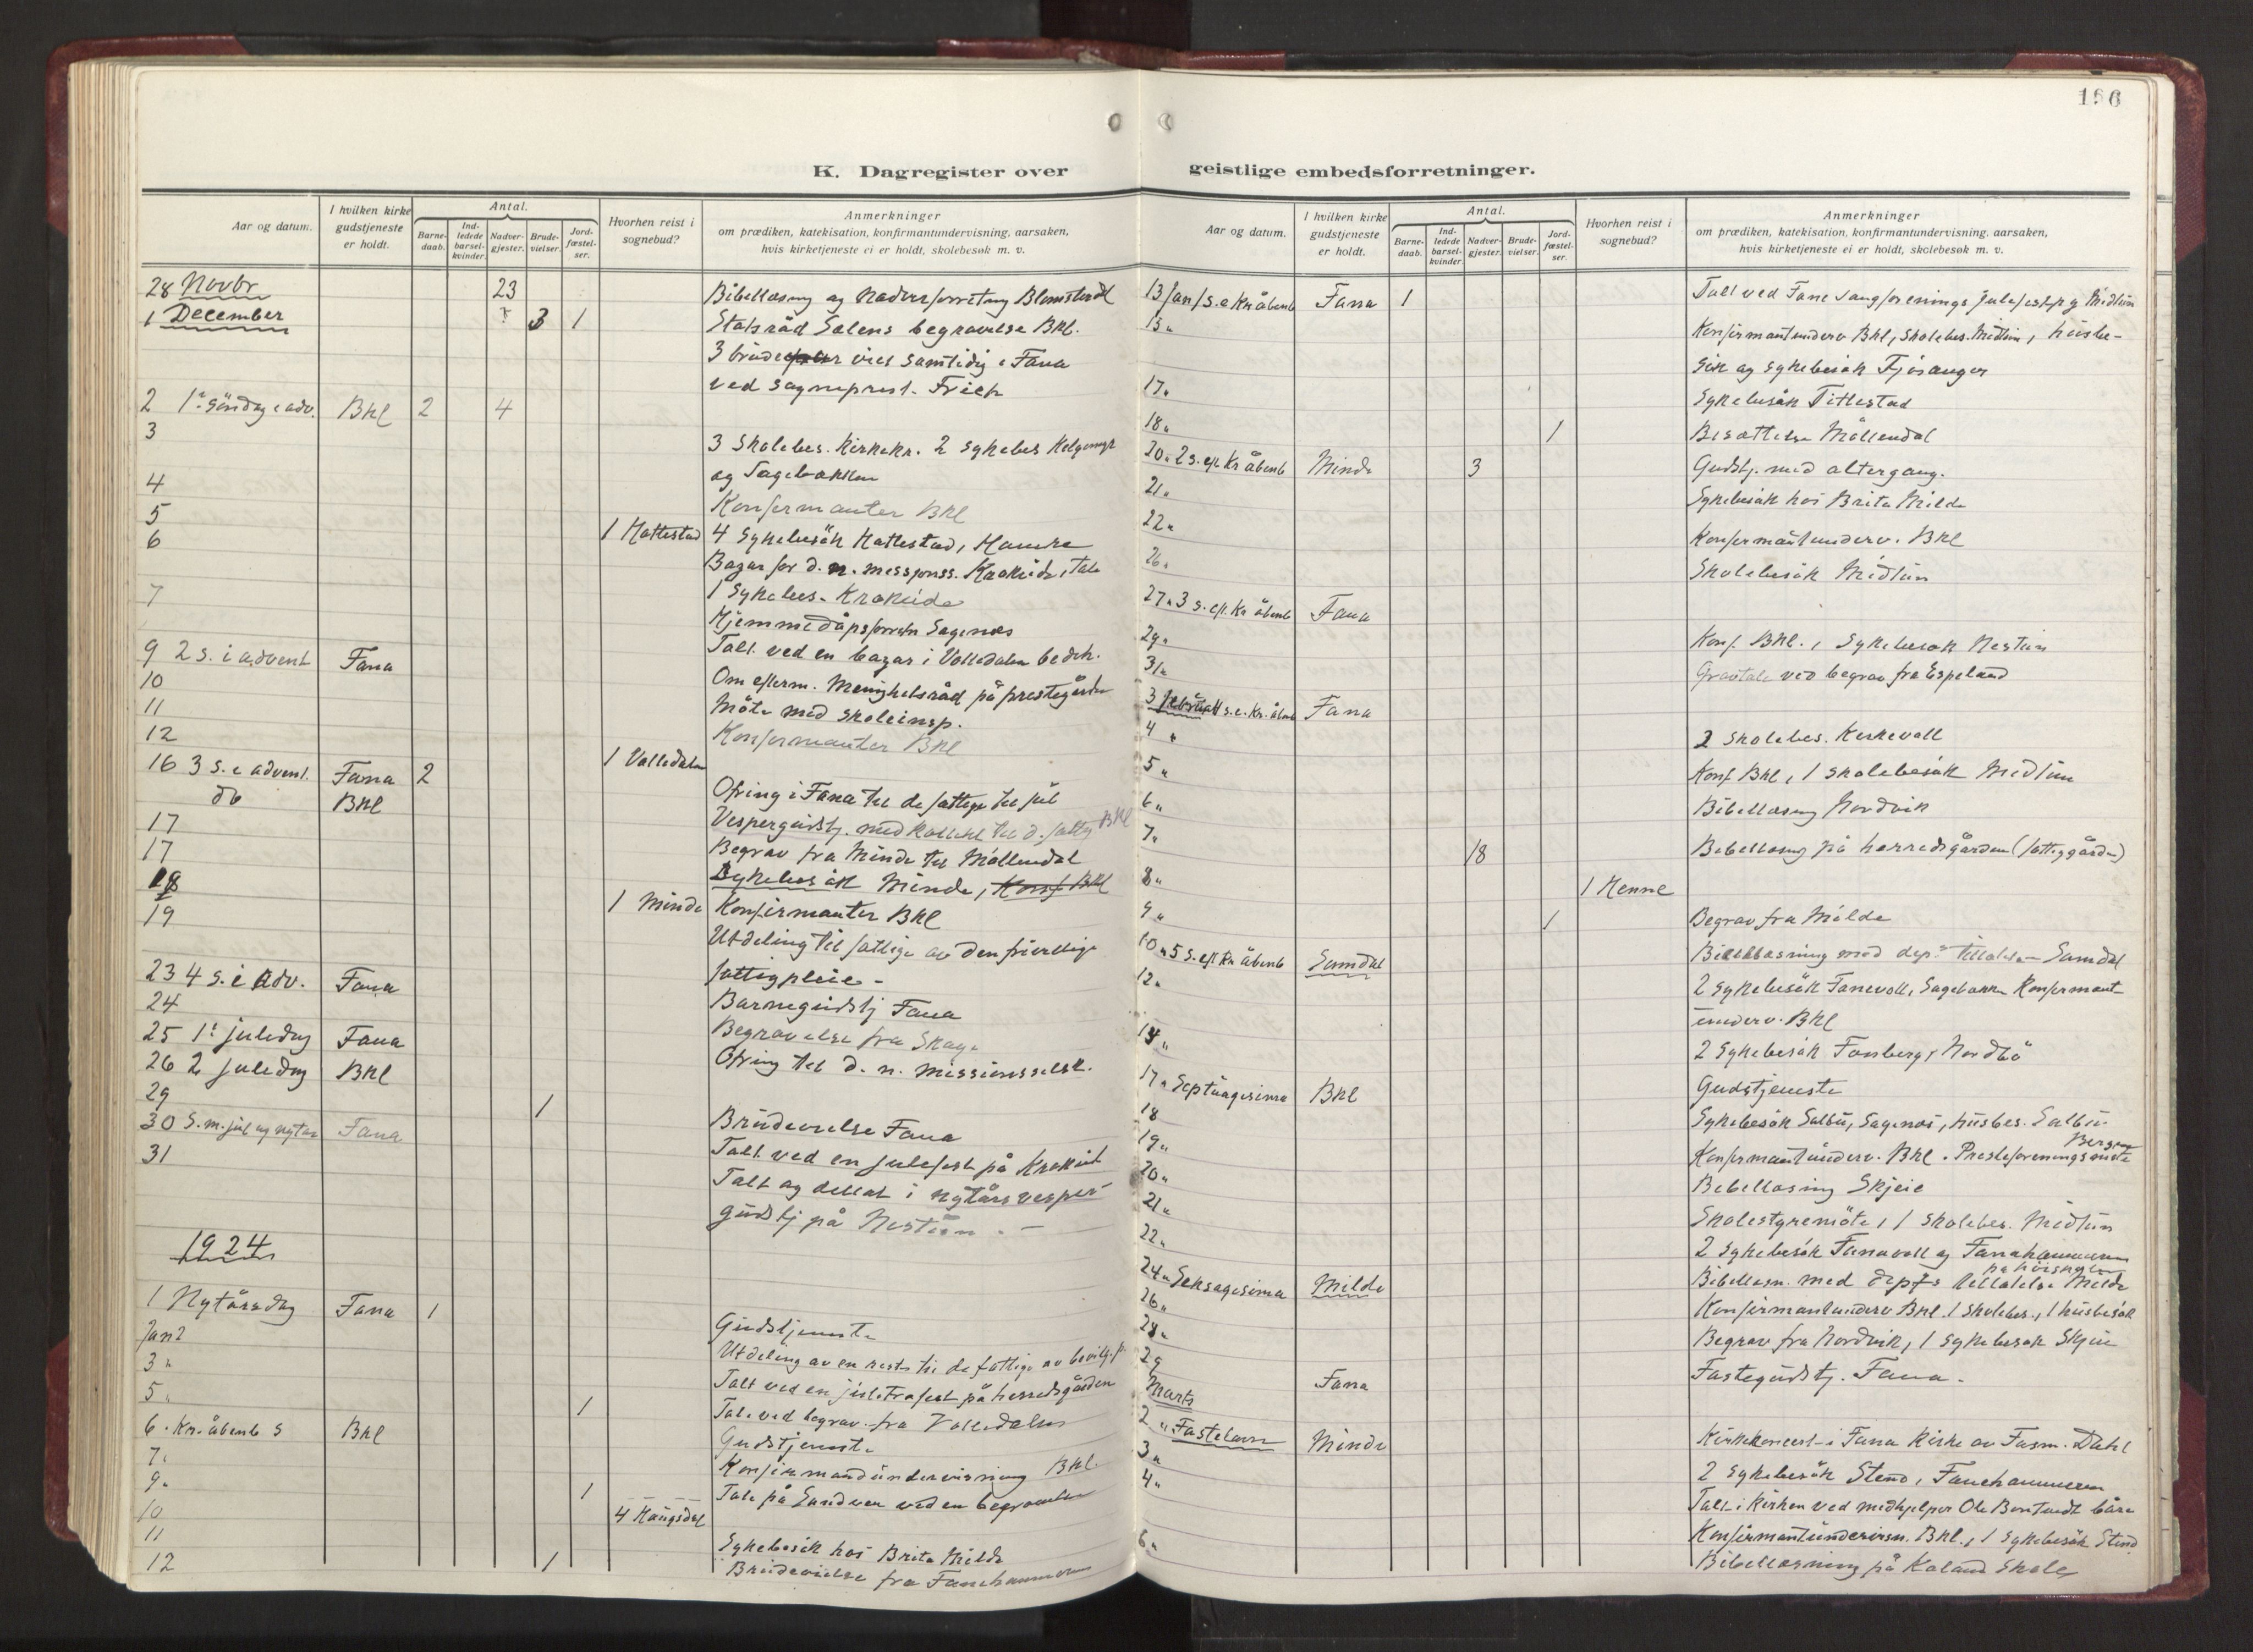 186
K. Dagregister over
geistlige embedsforretninger.
Aar og datum.
I hvilken kirke gudstjeneste er holdt.
Antal.
Barne-daab.
Ind-ledede barsel-kvinder.
Nadver-gjester.
Brude-vielser.
Jord-fæstel-ser.
Hvorhen reist i sognebud?
Anmerkninger
om prædiken, katekisation, konfirmantundervisning, aarsaken,
hvis kirketjeneste ei er holdt, skolebesøk m. v.
28 Novbr 23 Bibellæsning og Nadverforretning Blomsterdal
1 December 3 1 Statsråd Sælens begravelse BKl.
3 brudepar viet samtidig i Fana
ved sogneprest Frich
2 1ste Søndag i adv. BKl 2 4
3 3 Skolebes. Kirkekr. 2 sykebes
og Sagebakken
4 Konfirmanter BKl
5
6 1 Hattestad 4 Sykebesøk Hattestad, Hamre
Bazar for d. n. missjonss. Krokeide, tale
7 1 Sykebes. Krokeide
Hjemmedåpsforretn Sagenes
9 2 s. i advent Fana Talt ved en bazar i Volledalen bedeh.
10 Om efterm. Menighetsråd på prestegården
11 Möte med skoleinsp.
12 Konfirmanter BKl
16 3 s. i advent. Fana 2 1 Volledalen
do BKl Ofring i Fana til de fattige til jul
17 Vespergudstj. med kollekt til d. fattig BKl
17 Begrav fra Minde til Möllendal
18 Sykebesök Minde, Konf BKl
19 1 Minde Konfirmanter BKl
Utdeling til fattige av den frivillige
fattigpleie -
23 4 s. i Adv. Fana
24 Barnegudstj Fana
25 1ste juledag Fana Begravelse fra Skage
26 2 juledag BKl Ofring til d. n. missionsselsk.
29 1
30 S. m. jul og nytår Fana Brudevielse Fana
31 Talt ved en julefest på Krokeid
Talt og deltat i nytårsvesper-
gudstj på Nestun. -
1924
1 Nytårsdag Fana 1 Gudstjeneste
Jan 2 Utdeling av en rest til de fattige av bevilg.
3 " Talt ved en juletrefest på herredsgården
5 " 1 Tale ved begrav. fra Volledalen
6 " Kr. åbenb s BKl Gudstjeneste
7 " Konfirmandundervisning BKl.
9 " 1 Tale på Sandven ved en begravelse
10 4 Kaugsdal
11 Sykebesök hos Brita Milde
12 1 Brudevielse fra Fanehammeren
Aar og datum.
I hvilken kirke gudstjeneste er holdt.
Antal.
Barne-daab.
Ind-ledede barsel-kvinder.
Nadver-gjester.
Brude-vielser.
Jord-fæstel-ser.
Hvorhen reist i sognebud?
Anmerkninger
om prædiken, katekisation, konfirmantundervisning, aarsaken,
hvis kirketjeneste ei er holdt, skolebesøk m. v.
13 Jan 1 s. e Kr åbenb Fana 1 Talt ved Fane sangforenings julefest på Midtun
15 " Konfirmantunderv BKl, Skolebes. Midtun, husbe-
sök og sykebesök Fjösanger
17 " Sykebesök Tittestad
18 " 1 Bisættelse Möllendal
20 " 2 s. eft Kr åbenb Minde 3 Gudstj. med altergang.
21 " Sykebesök hos Brita Milde
22 " Konfirmantunderv. BKl
26 " Skolebesök Midtun
27 " 3 s. eft. Kr åbenb Fana
29 " Konf. BKl. 1 Sykebesök Nestun
31 " Gravtale ved begrav fra Espeland
3 februar 4 s. e. Kr. åbenb Fana
4 " 2 Skolebes. Kirkevoll
5 " Konf BKl, 1 skolebesök Midtun
6 " Bibellæsning Nordvik
7 " 18 Bibellæsning på herredsgården (fattiggården)
8 " 1 Henne
9 " 1 Begrav fra Milde
10 " 5 s. eft Kr åbenb Samdal Bibellæsning med dep:s tillatelse Samdal
12 " 2 Sykebesök Fanevoll, Sagebakken Konfirmant-
underv. BKl
14 " 2 Sykebesök Nordbö
17 " Septuagesima BKl Gudstjeneste
18 Sykebesök Salbu, Sagenes, husbes. Salbu
19 " Konfirmantunderv. BKl. Presteforeningsmöte Bergen
20 " Bibellæsning Skjeie
21 " Skolestyremöte, 1 skolebes. Midtun
22 " 2 sykebesök Fanavoll og Fanahammeren
24 " Seksagesima Milde Bibellæsn. med dep:s tillatelse Milde
26 " Konfirmantunderv BKl. 1 Skolebes., 1 husbesök
28 " Begrav fra Nordvik, 1 sykebesök Skjeie
29 Fana Fastegudstj. Fana.
Marts
2 " Fastelavn Minde Kirkekoncert i Fana Kirke av Dahl
3 " 2 Sykebesök Stend, Fanehammeren
4 " Talt i Kirken ved medhjelper Ole båre
Konfirmantundervisn. BKl., 1 Sykebesök Stend
6 " Bibellæsning på Kaland Skole